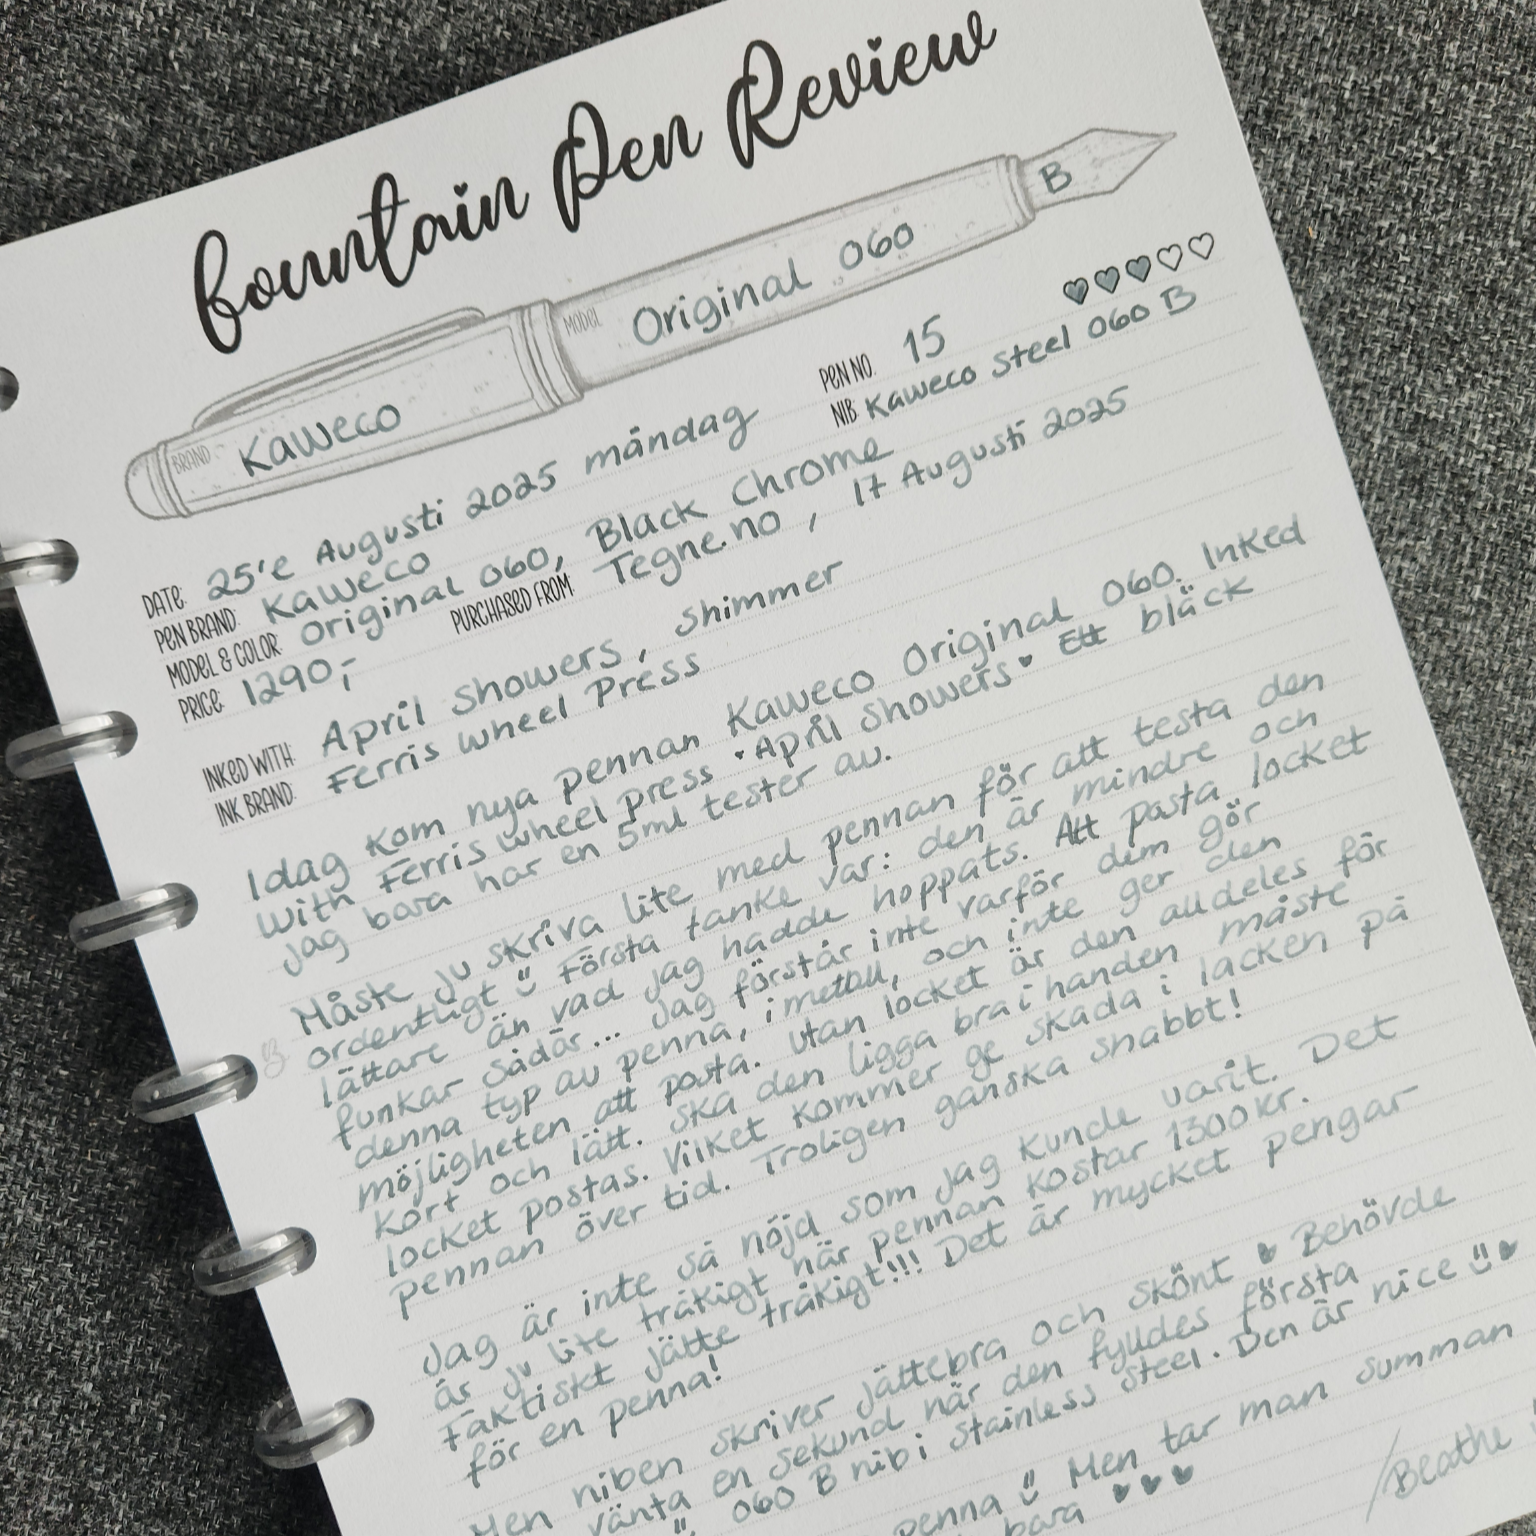 Fountain Pen Review
B
MODEL Original 060
BRAND Kaweco
PEN NO. 15
NIB: Kaweco Steel 060 B
DATE: 25'e Augusti 2025 måndag
PEN BRAND: Kaweco
MODEL & COLOR: Original 060, Black Chrome
PRICE: 1290,- PURCHASED FROM: Tegne.no, 17 Augusti 2025
INKED WITH: April Showers, Shimmer
INK BRAND: Ferris Wheel Press
Idag kom nya pennan Kaweco Original 060. Inked
with Ferris wheel press · April Showers · Ett bläck
jag bara har en 5ml tester av.
Måste ju skriva lite med pennan för att testa den
ordentligt Första tanke var: den är mindre och
lättare än vad jag hadde hoppats. Att posta locket
funkar sådär... Jag förstår inte varför dem gör
denna typ av penna, i metall, och inte ger den
möjligheten att posta. Utan locket är den alldeles för
kort och lätt. Ska den ligga bra i handen måste
locket postas. Vilket kommer ge skada i lacken på
pennan över tid. Troligen ganska snabbt!
Jag är inte så nöjd som jag kunde varit. Det
är ju lite tråkigt när pennan kostar 1300kr.
Faktiskt jätte tråkigt!!! Det är mycket pengar
för en penna!
Men niben skriver jättebra och skönt ♥ Behövde
vänta en sekund när den fylldes första
060 B nib i stainless steel. Den är nice ♥
penna Men tar man summan
bara ♥♥♥
/Beathe